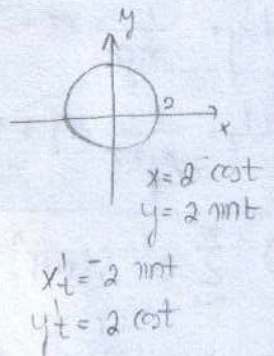 y
2
x
x = 2 cost
y = 2 sint
x't = -2 sint
y't = 2 cost